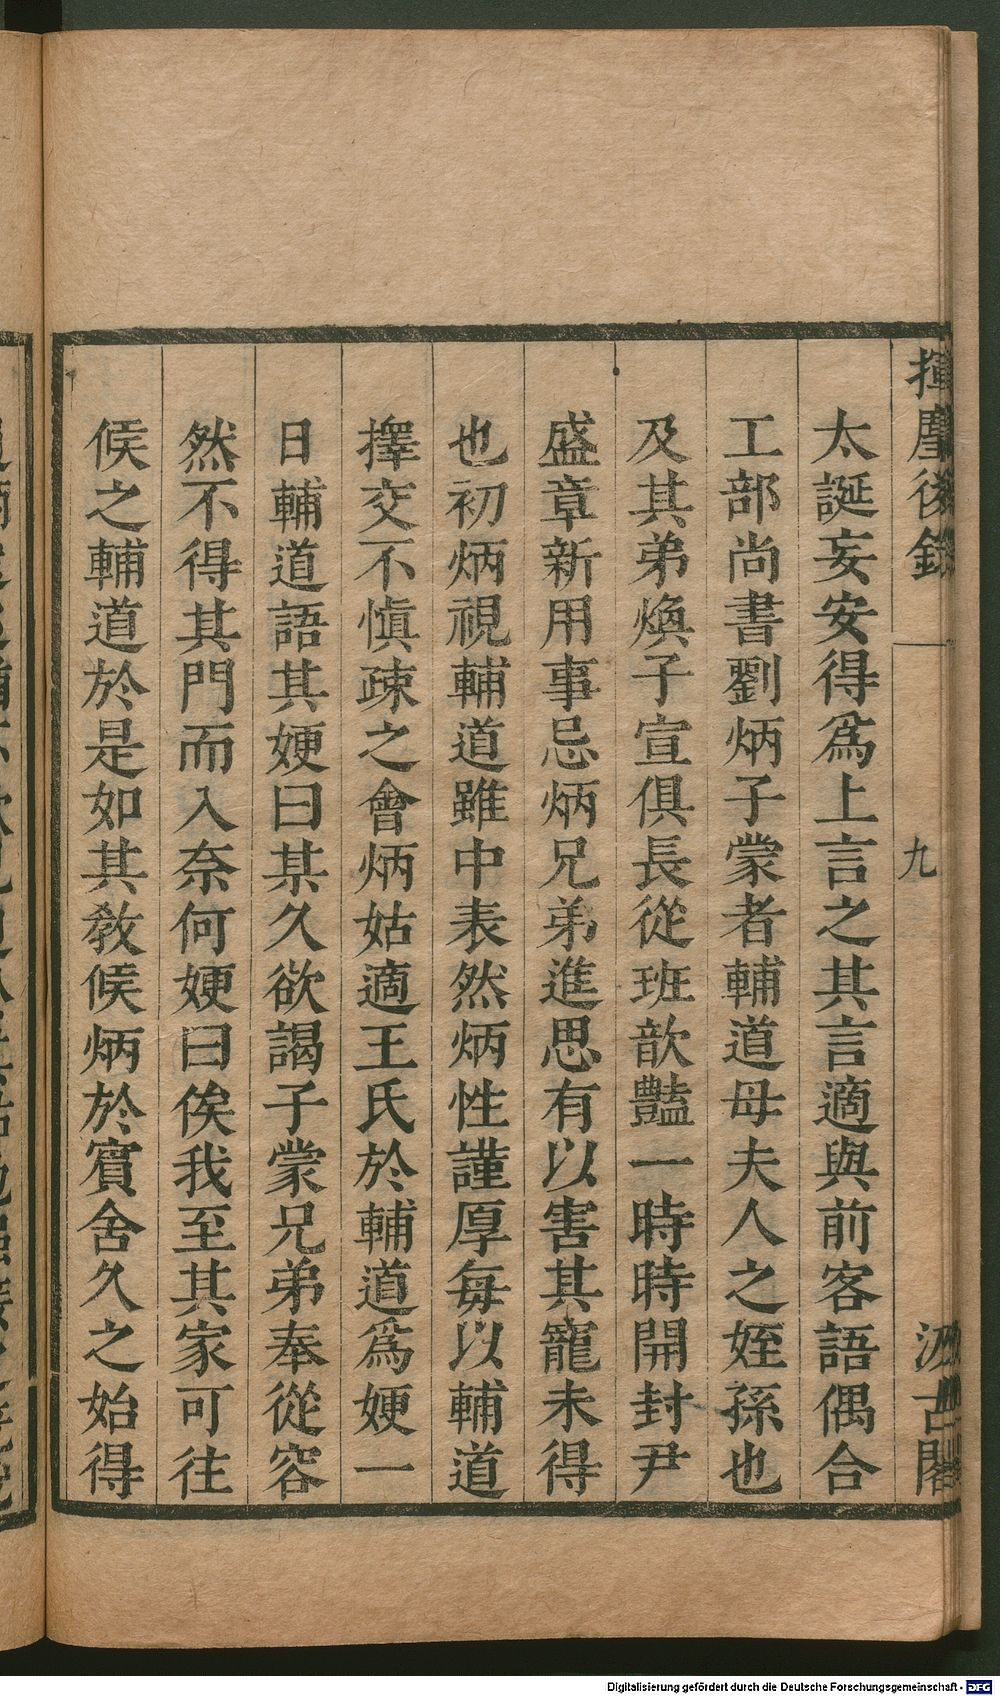 揮麈後錄
九
汲古閣
太誕妄安得爲上言之其言適與前客語偶合
工部尚書劉炳子蒙者輔道母夫人之姪孫也
及其弟煥子宣俱長從班歆豔一時時開封尹
盛章新用事忌炳兄弟進思有以害其寵未得
也初炳視輔道雖中表然炳性謹厚每以輔道
擇交不愼疎之會炳姑適王氏於輔道爲㛐一
日輔道語其㛐曰某久欲謁子蒙兄弟奉從容
然不得其門而入奈何㛐曰俟我至其家可往
候之輔道於是如其敎候炳於賓舍久之始得
Digitalisierung gefördert durch die Deutsche Forschungsgemeinschaft - DFG